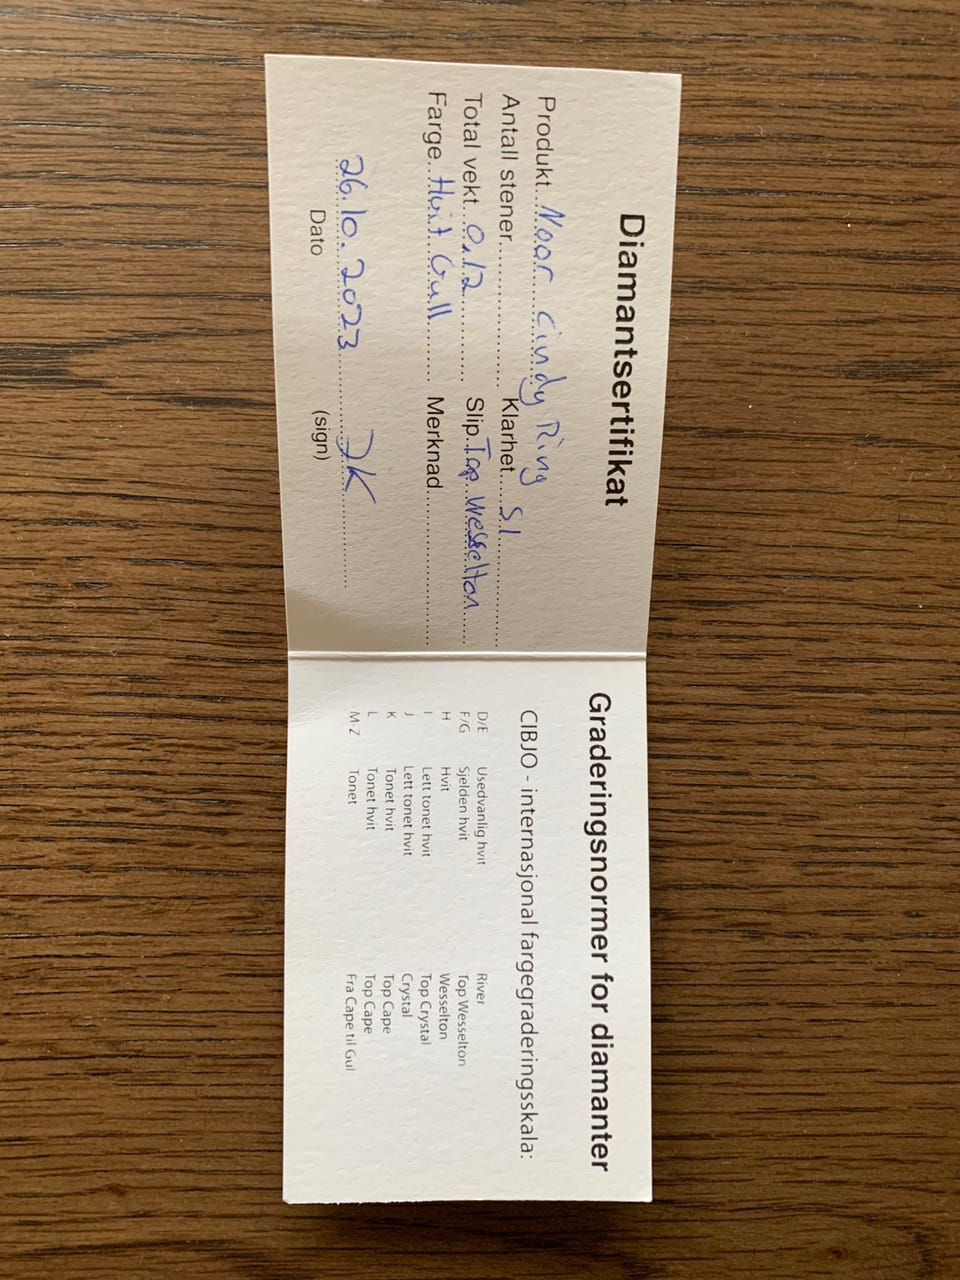 Diamantsertifikat
Produkt...Noor Cindy Ring
Antall stener.................... Klarhet......SI....................
Total vekt...0.12............ Slip..Top Wesselton......
Farge...Hvit Gull......... Merknad.........................
26.10.2023 JK
Dato (sign)
Graderingsnormer for diamanter
CIBJO - internasjonal fargegraderingsskala:
D/E Usedvanlig hvit River
F/G Sjelden hvit Top Wesselton
H Hvit Wesselton
I Lett tonet hvit Top Crystal
J Lett tonet hvit Crystal
K Tonet hvit Top Cape
L Tonet hvit Top Cape
M-Z Tonet Fra Cape til Gul